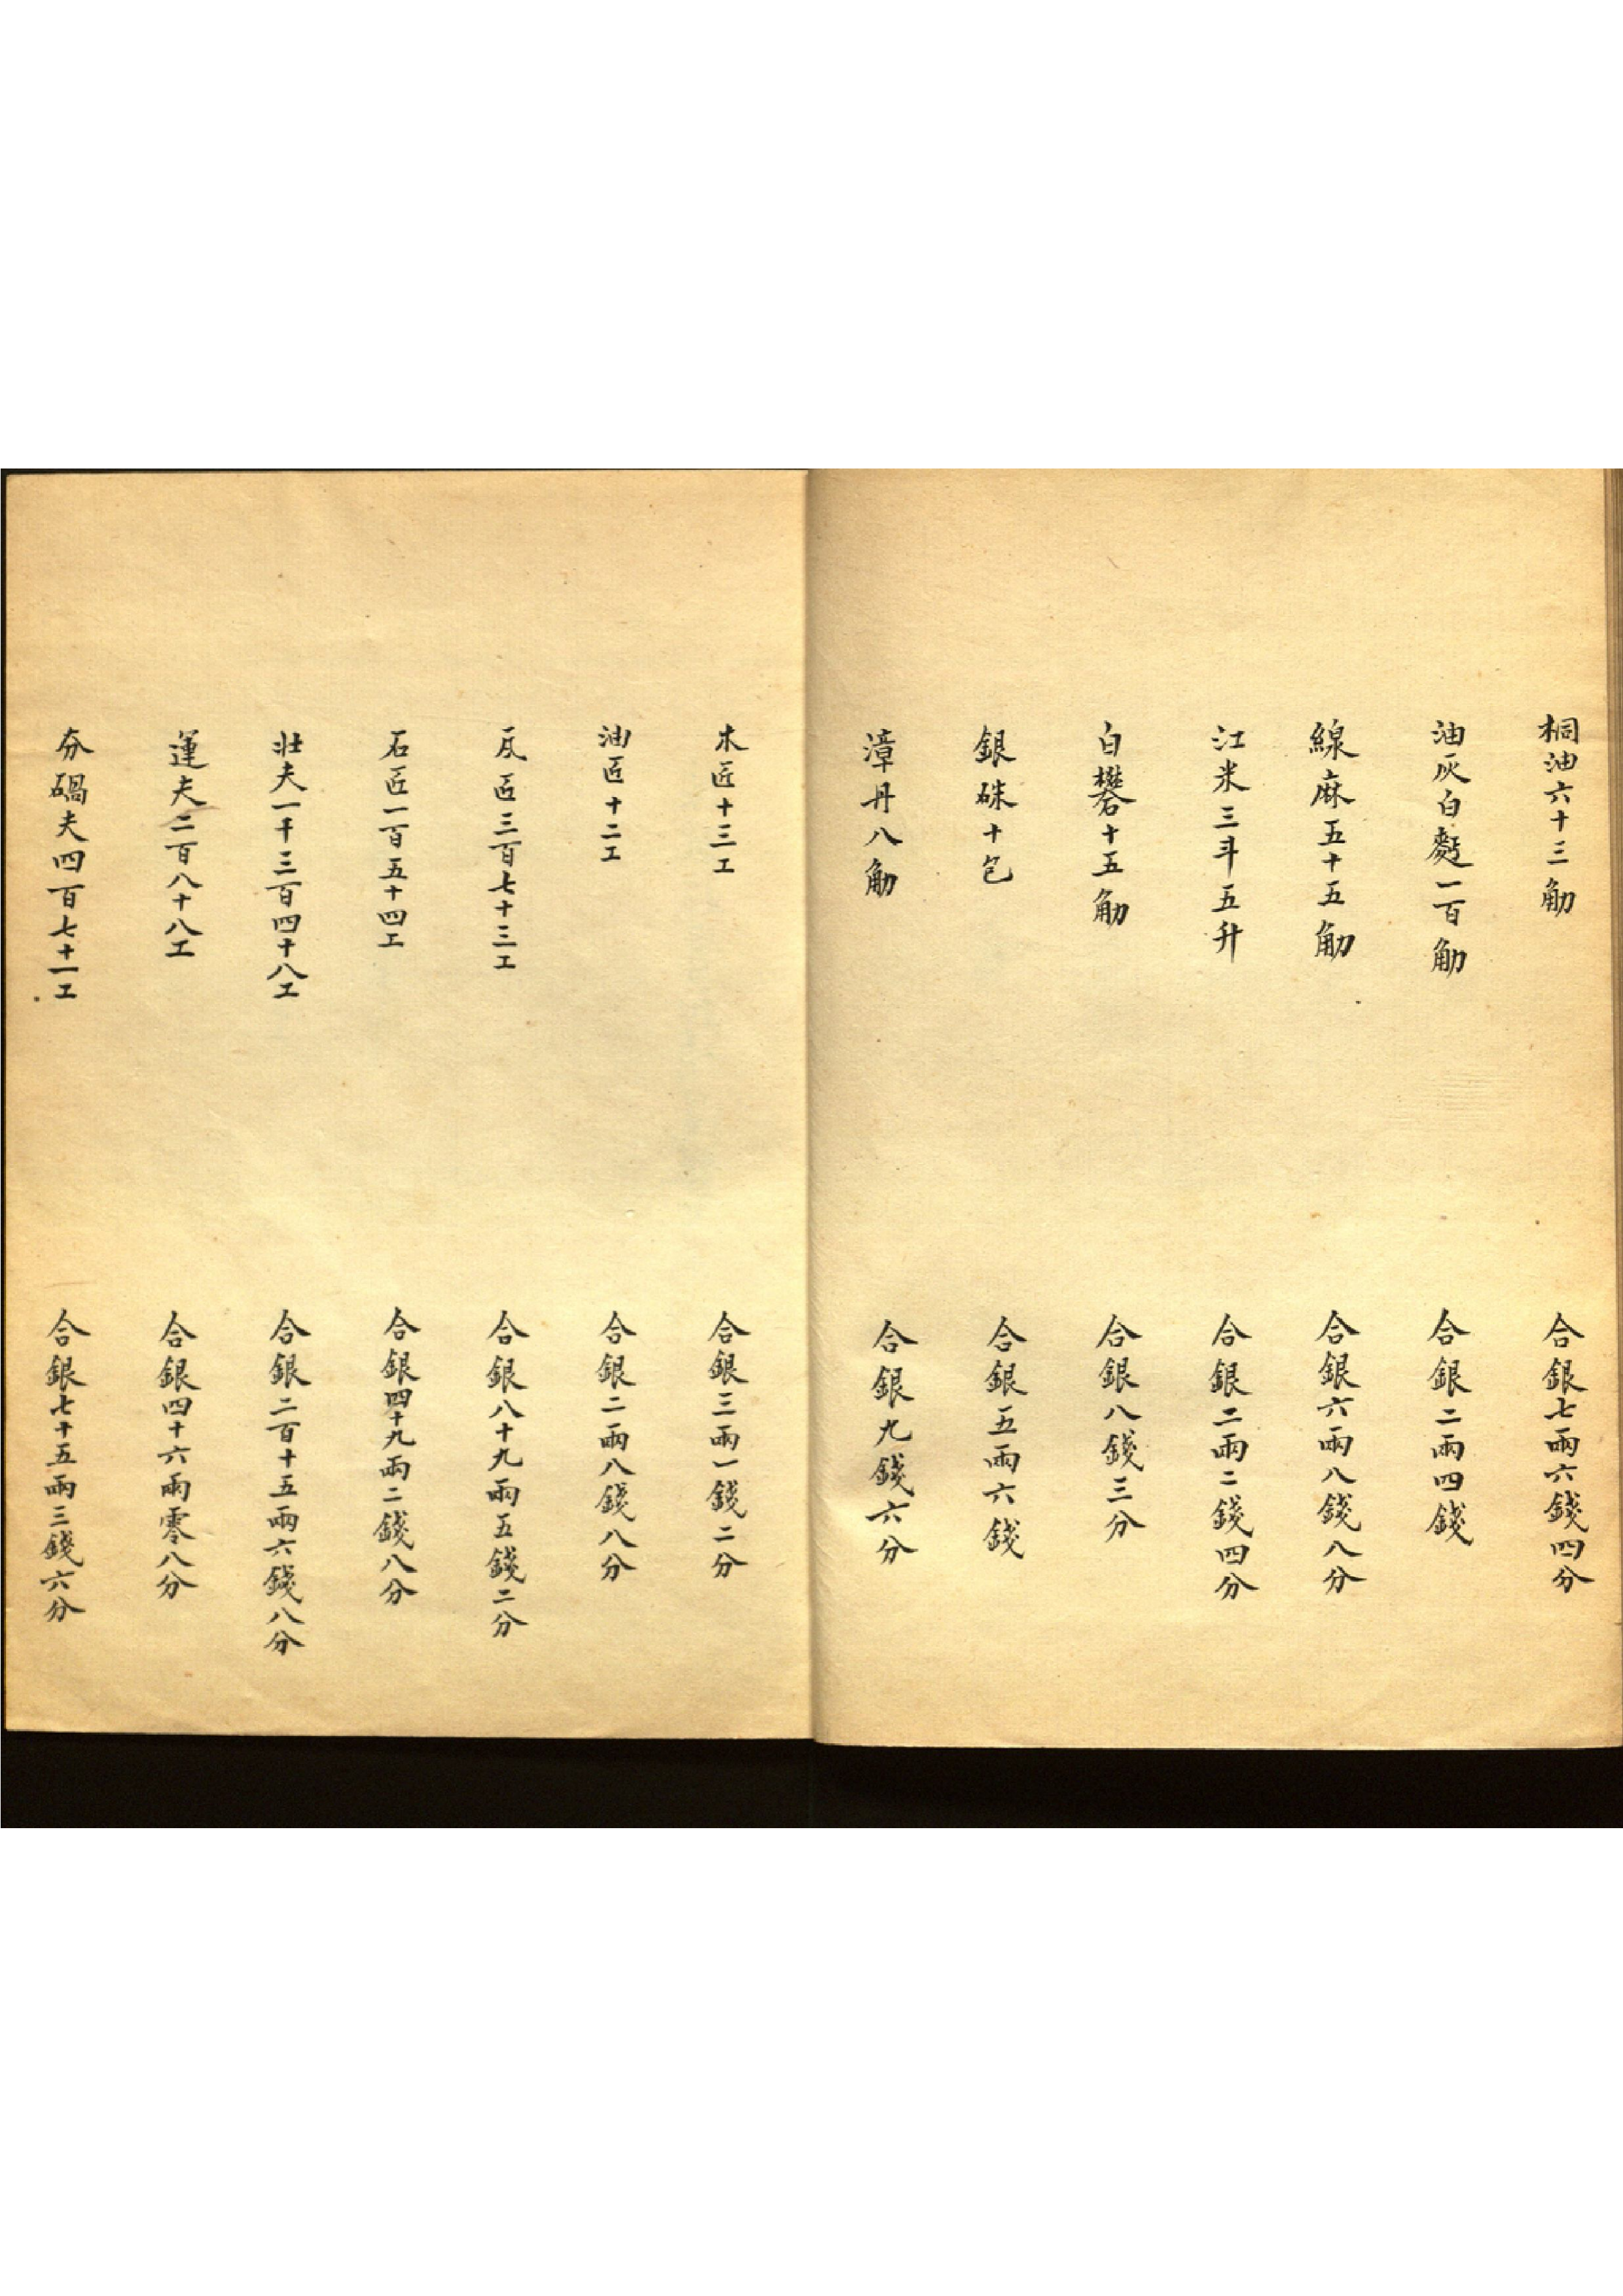 桐油六十三觔 合銀七兩六錢四分
油灰白麪一百觔 合銀二兩四錢
線麻五十五觔 合銀六兩八錢八分
江米三斗五升 合銀二兩二錢四分
白礬十五觔 合銀八錢三分
銀硃十包 合銀五兩六錢
漳丹八觔 合銀九錢六分
木匠十三工 合銀三兩一錢二分
油匠十二工 合銀二兩八錢八分
瓦匠三百七十三工 合銀八十九兩五錢二分
石匠一百五十四工 合銀四十九兩二錢八分
壯夫一千三百四十八工 合銀二百十五兩六錢八分
運夫二百八十八工 合銀四十六兩零八分
夯碢夫四百七十一工 合銀七十五兩三錢六分